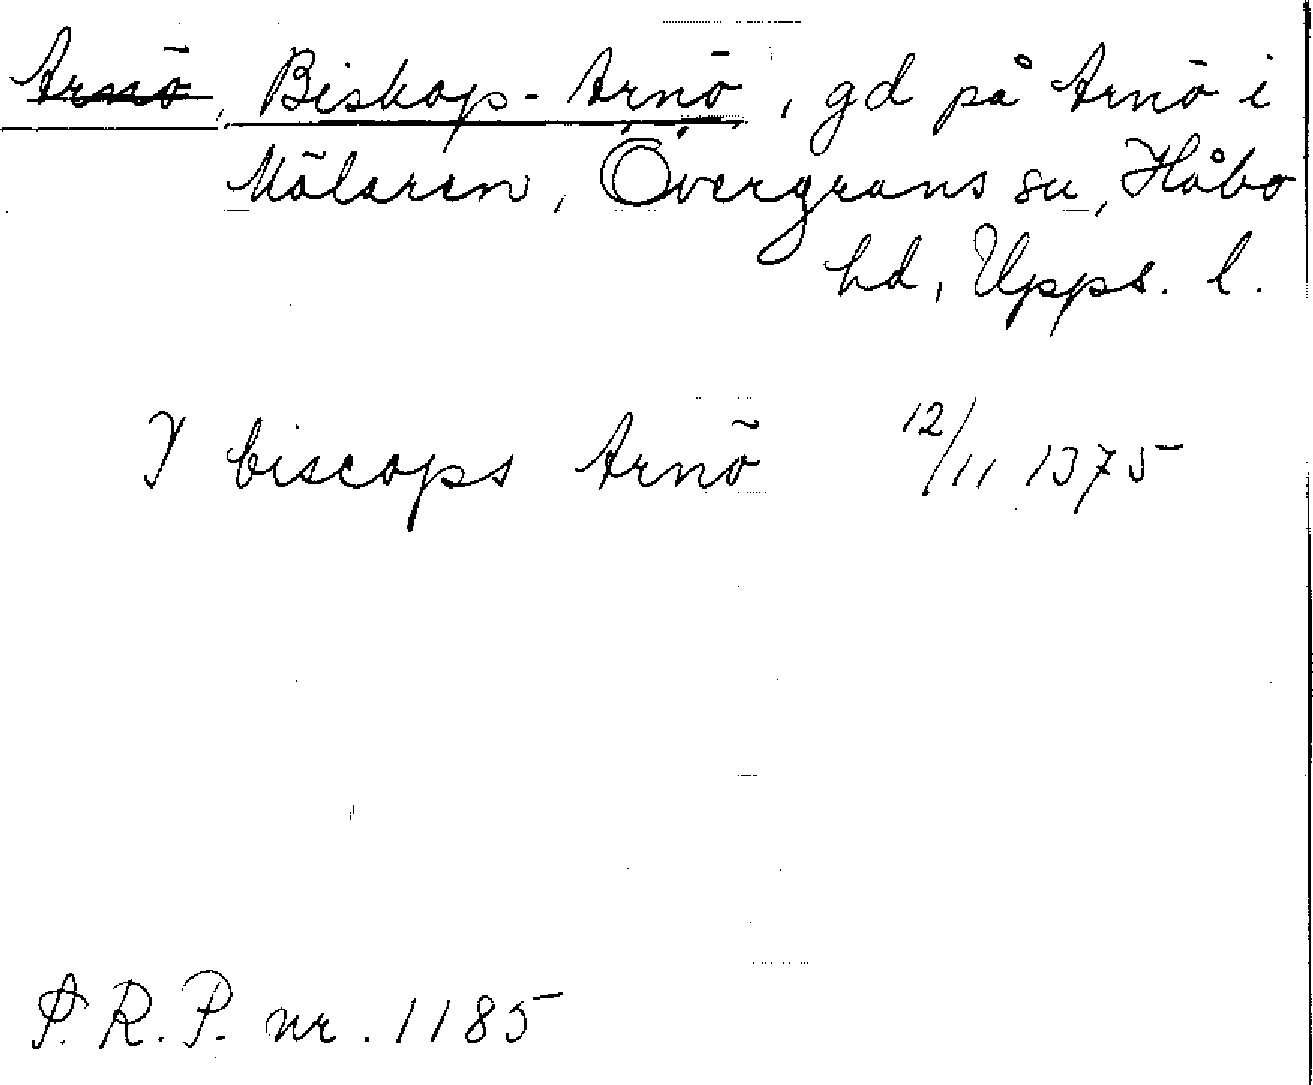 Arnö, Biskop-Arnö, gd på Arnö i
Mälaren, Övergrans sn, Håbo
hd, Upps. l.
I biscops Arnö 12/11 1375
S. R. P. nr. 1185